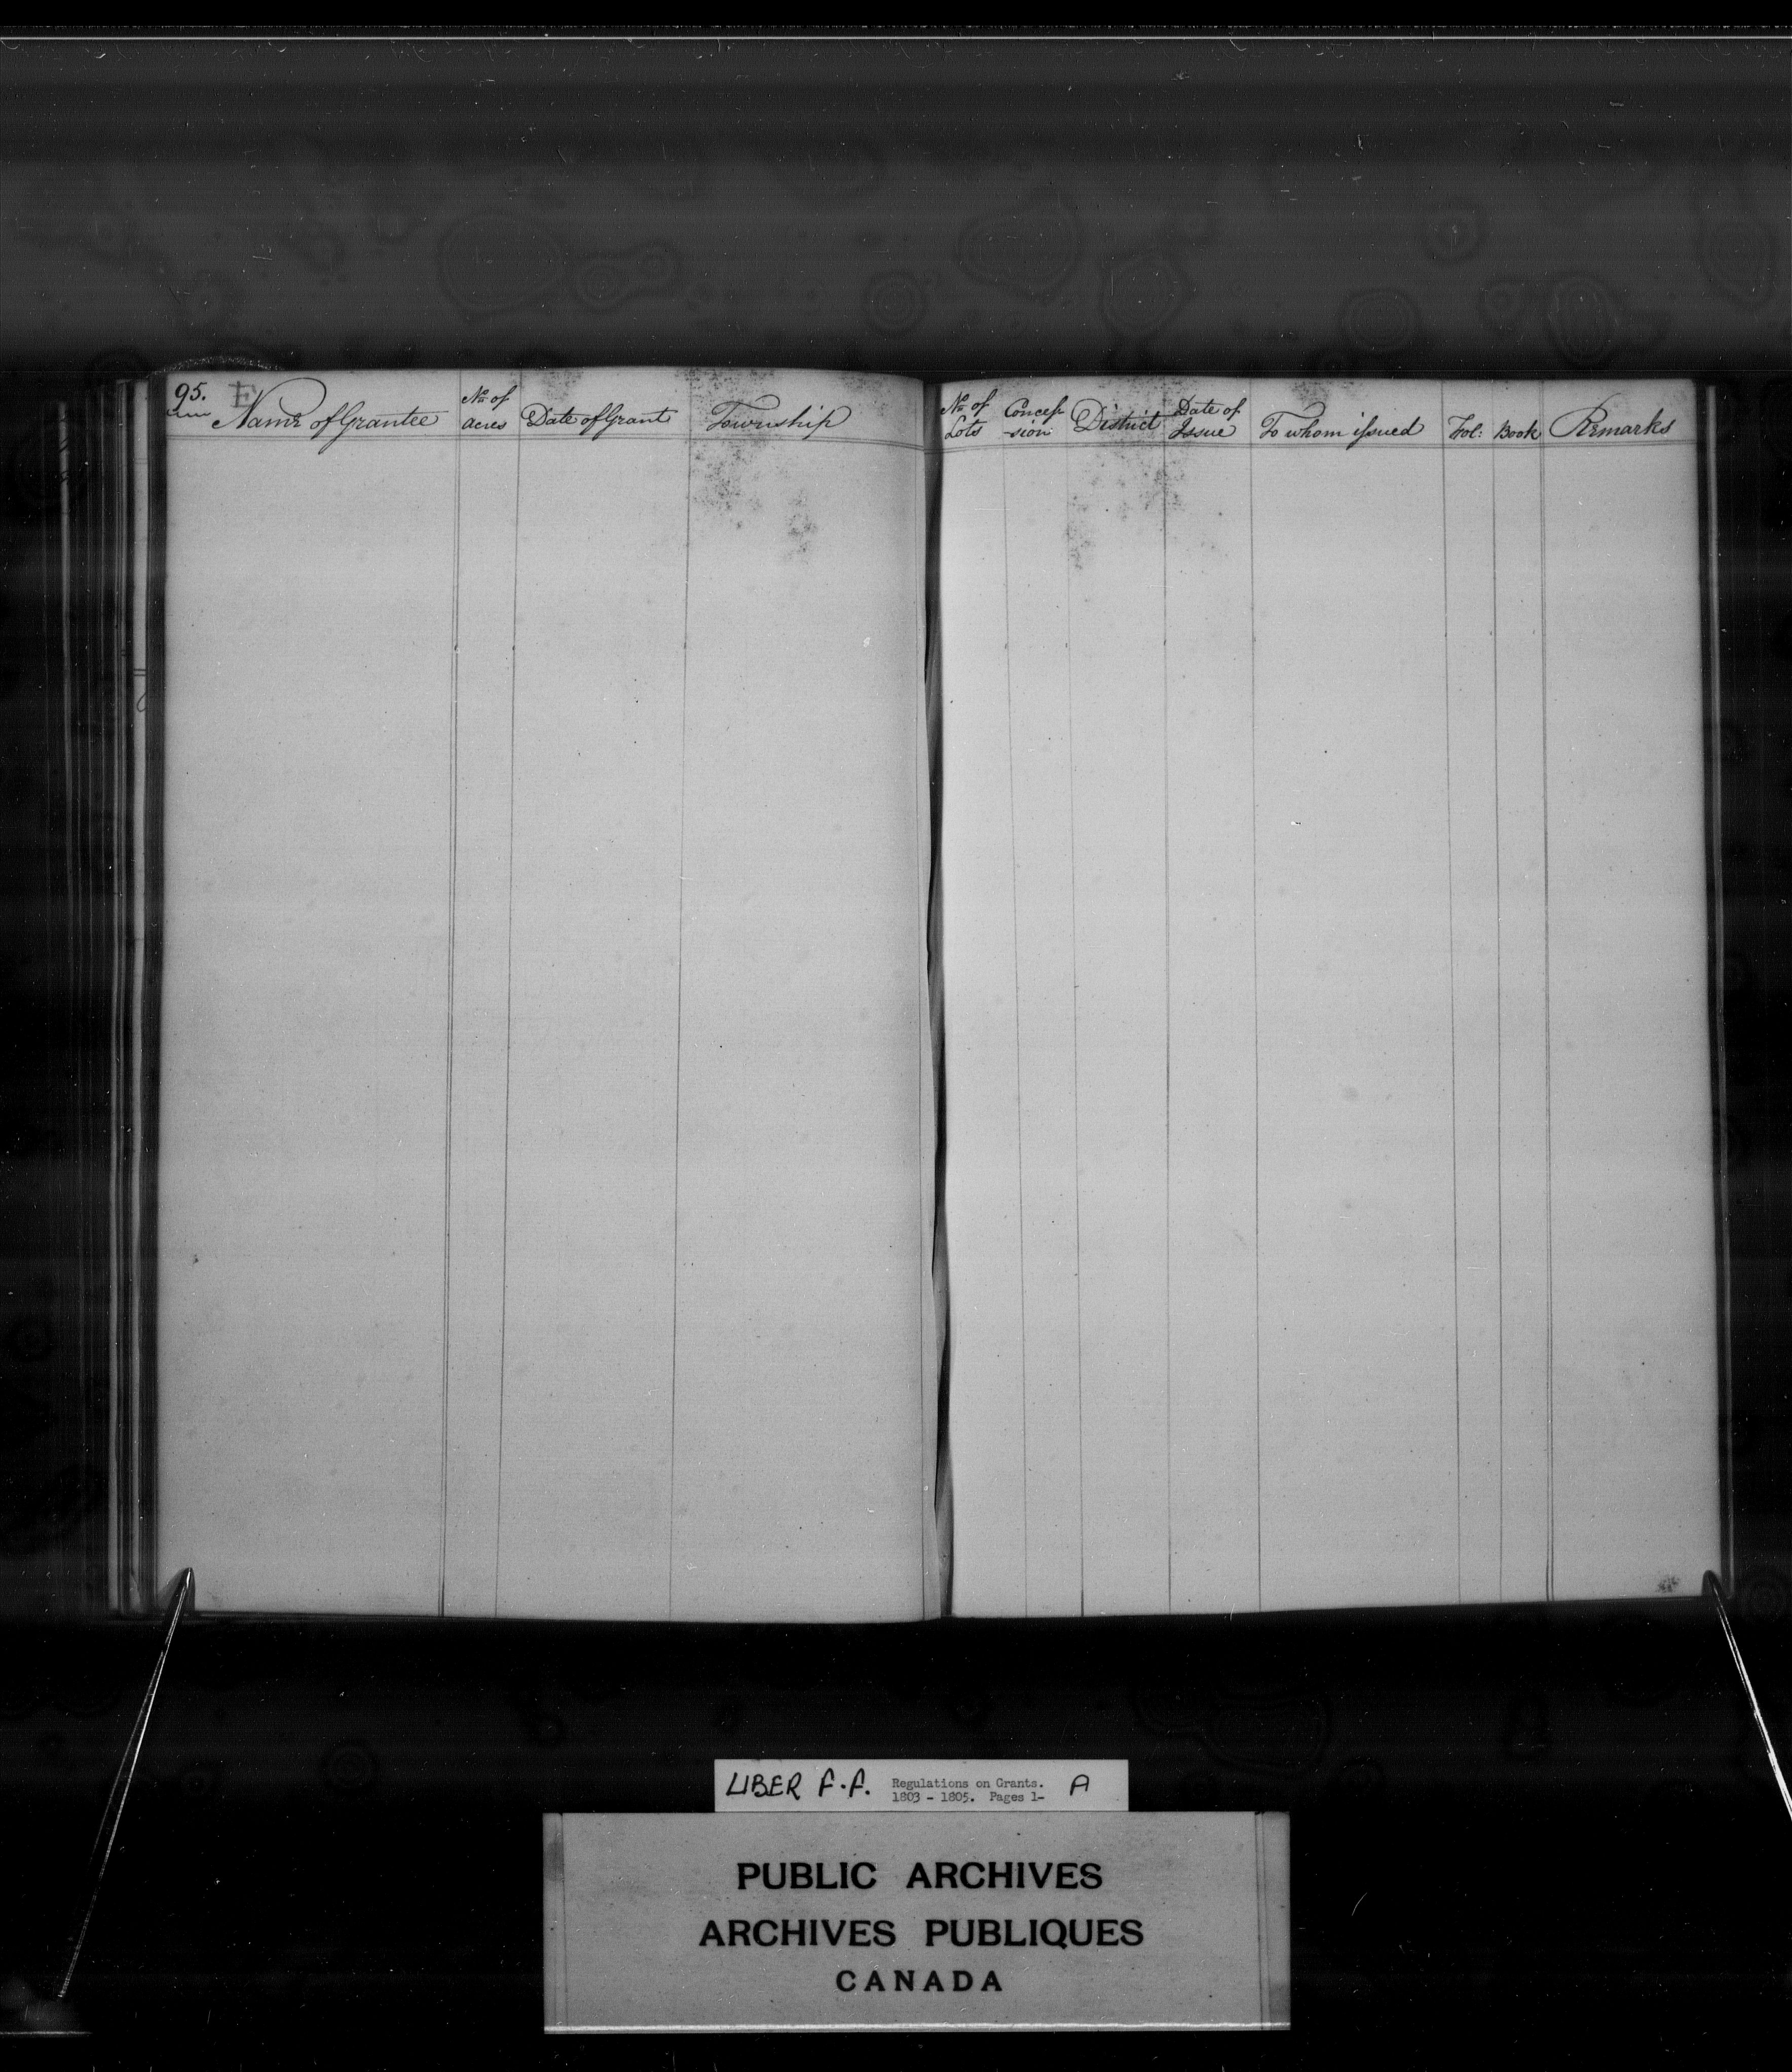 95. E
Name of Grantee
No. of
acres
Date of Grant
Township
No. of
Lots
Concess
-sion
District
Date of
Issue
To whom issued
Fol:
Book
Remarks
LIBER F.F. Regulations on Grants. A
1803 - 1805. Pages 1-
PUBLIC ARCHIVES
ARCHIVES PUBLIQUES
CANADA